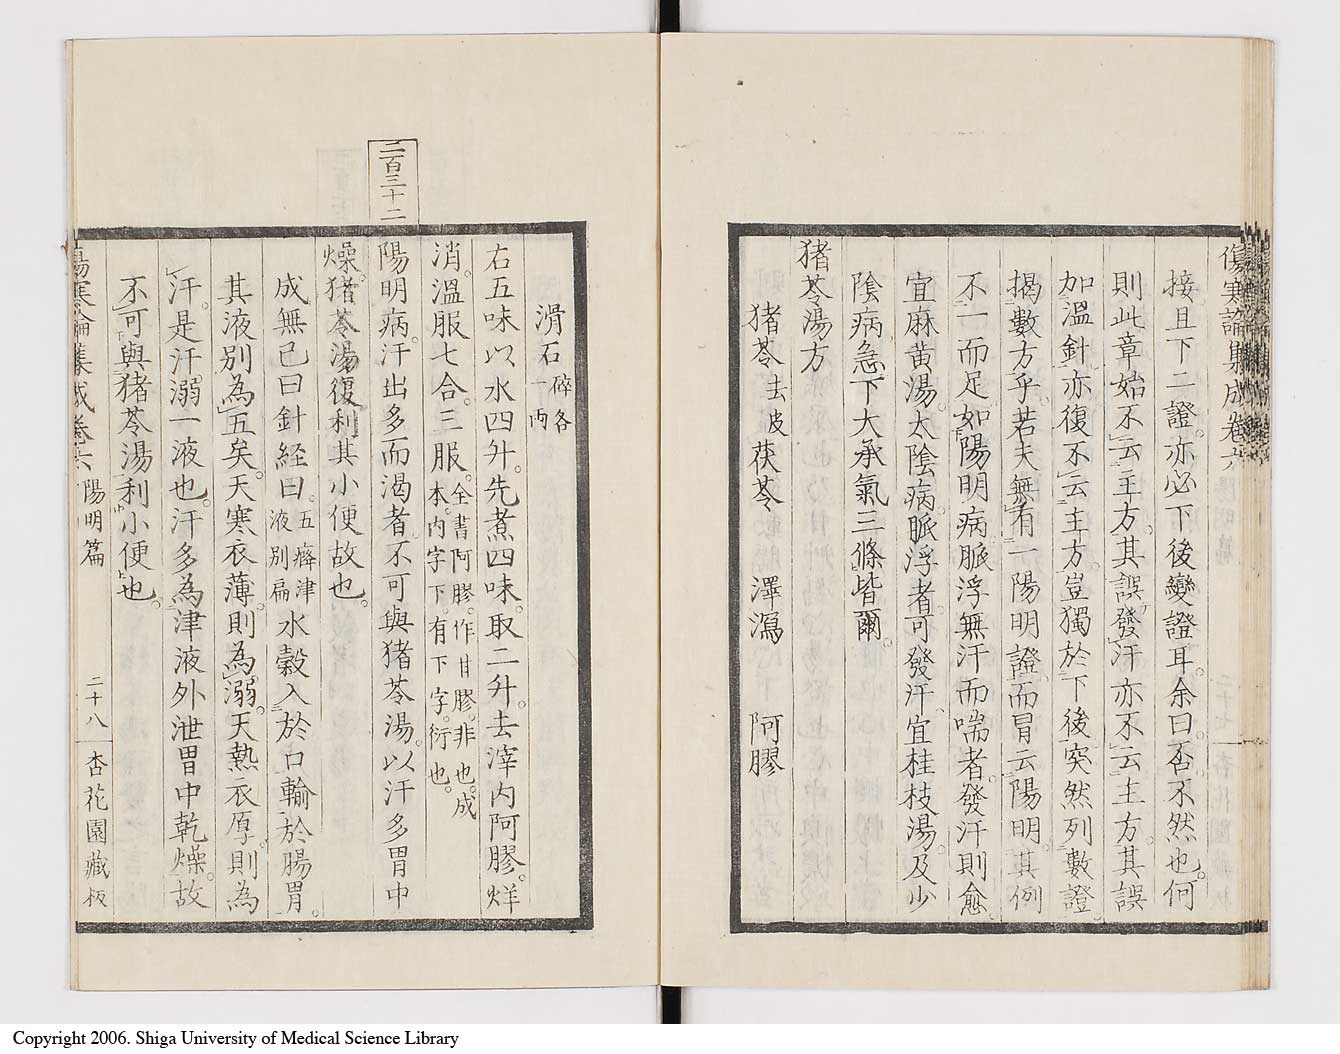 傷寒論集成卷六
接且下二證。亦必下後變證耳。余曰。否。不然也。何
則此章始不云主方。其誤發汗亦不云主方。其誤
加溫針亦復不云主方。豈獨於下後突然列數證。
揭數方乎。若夫無有一陽明證而冒云陽明。其例
不一而足。如陽明病脈浮無汗而喘者。發汗則愈。
宜麻黃湯。太陰病。脈浮者。可發汗。宜桂枝湯。及少
陰病急下大承氣三條。皆爾。
猪苓湯方
猪苓去皮 茯苓 澤瀉 阿膠
滑石碎各一兩
右五味以水四升。先煮四味。取二升。去滓内阿膠。烊
消。溫服七合。三服。全書阿膠。作甘膠。非也。成本。内字下。有下字。衍也。
二百三十二
陽明病。汗出多而渴者。不可與猪苓湯。以汗多胃中
燥。猪苓湯復利其小便故也。
成無己曰針經曰。五癃津液別扁水穀入於口輸於腸胃。
其液別為五矣。天寒衣薄。則為溺。天熱衣厚。則為
汗。是汗溺一液也。汗多為津液外泄胃中乾燥。故
不可與猪苓湯利小便也。
傷寒論集成卷六 陽明篇 二十八 杏花園藏板
Copyright 2006. Shiga University of Medical Science Library